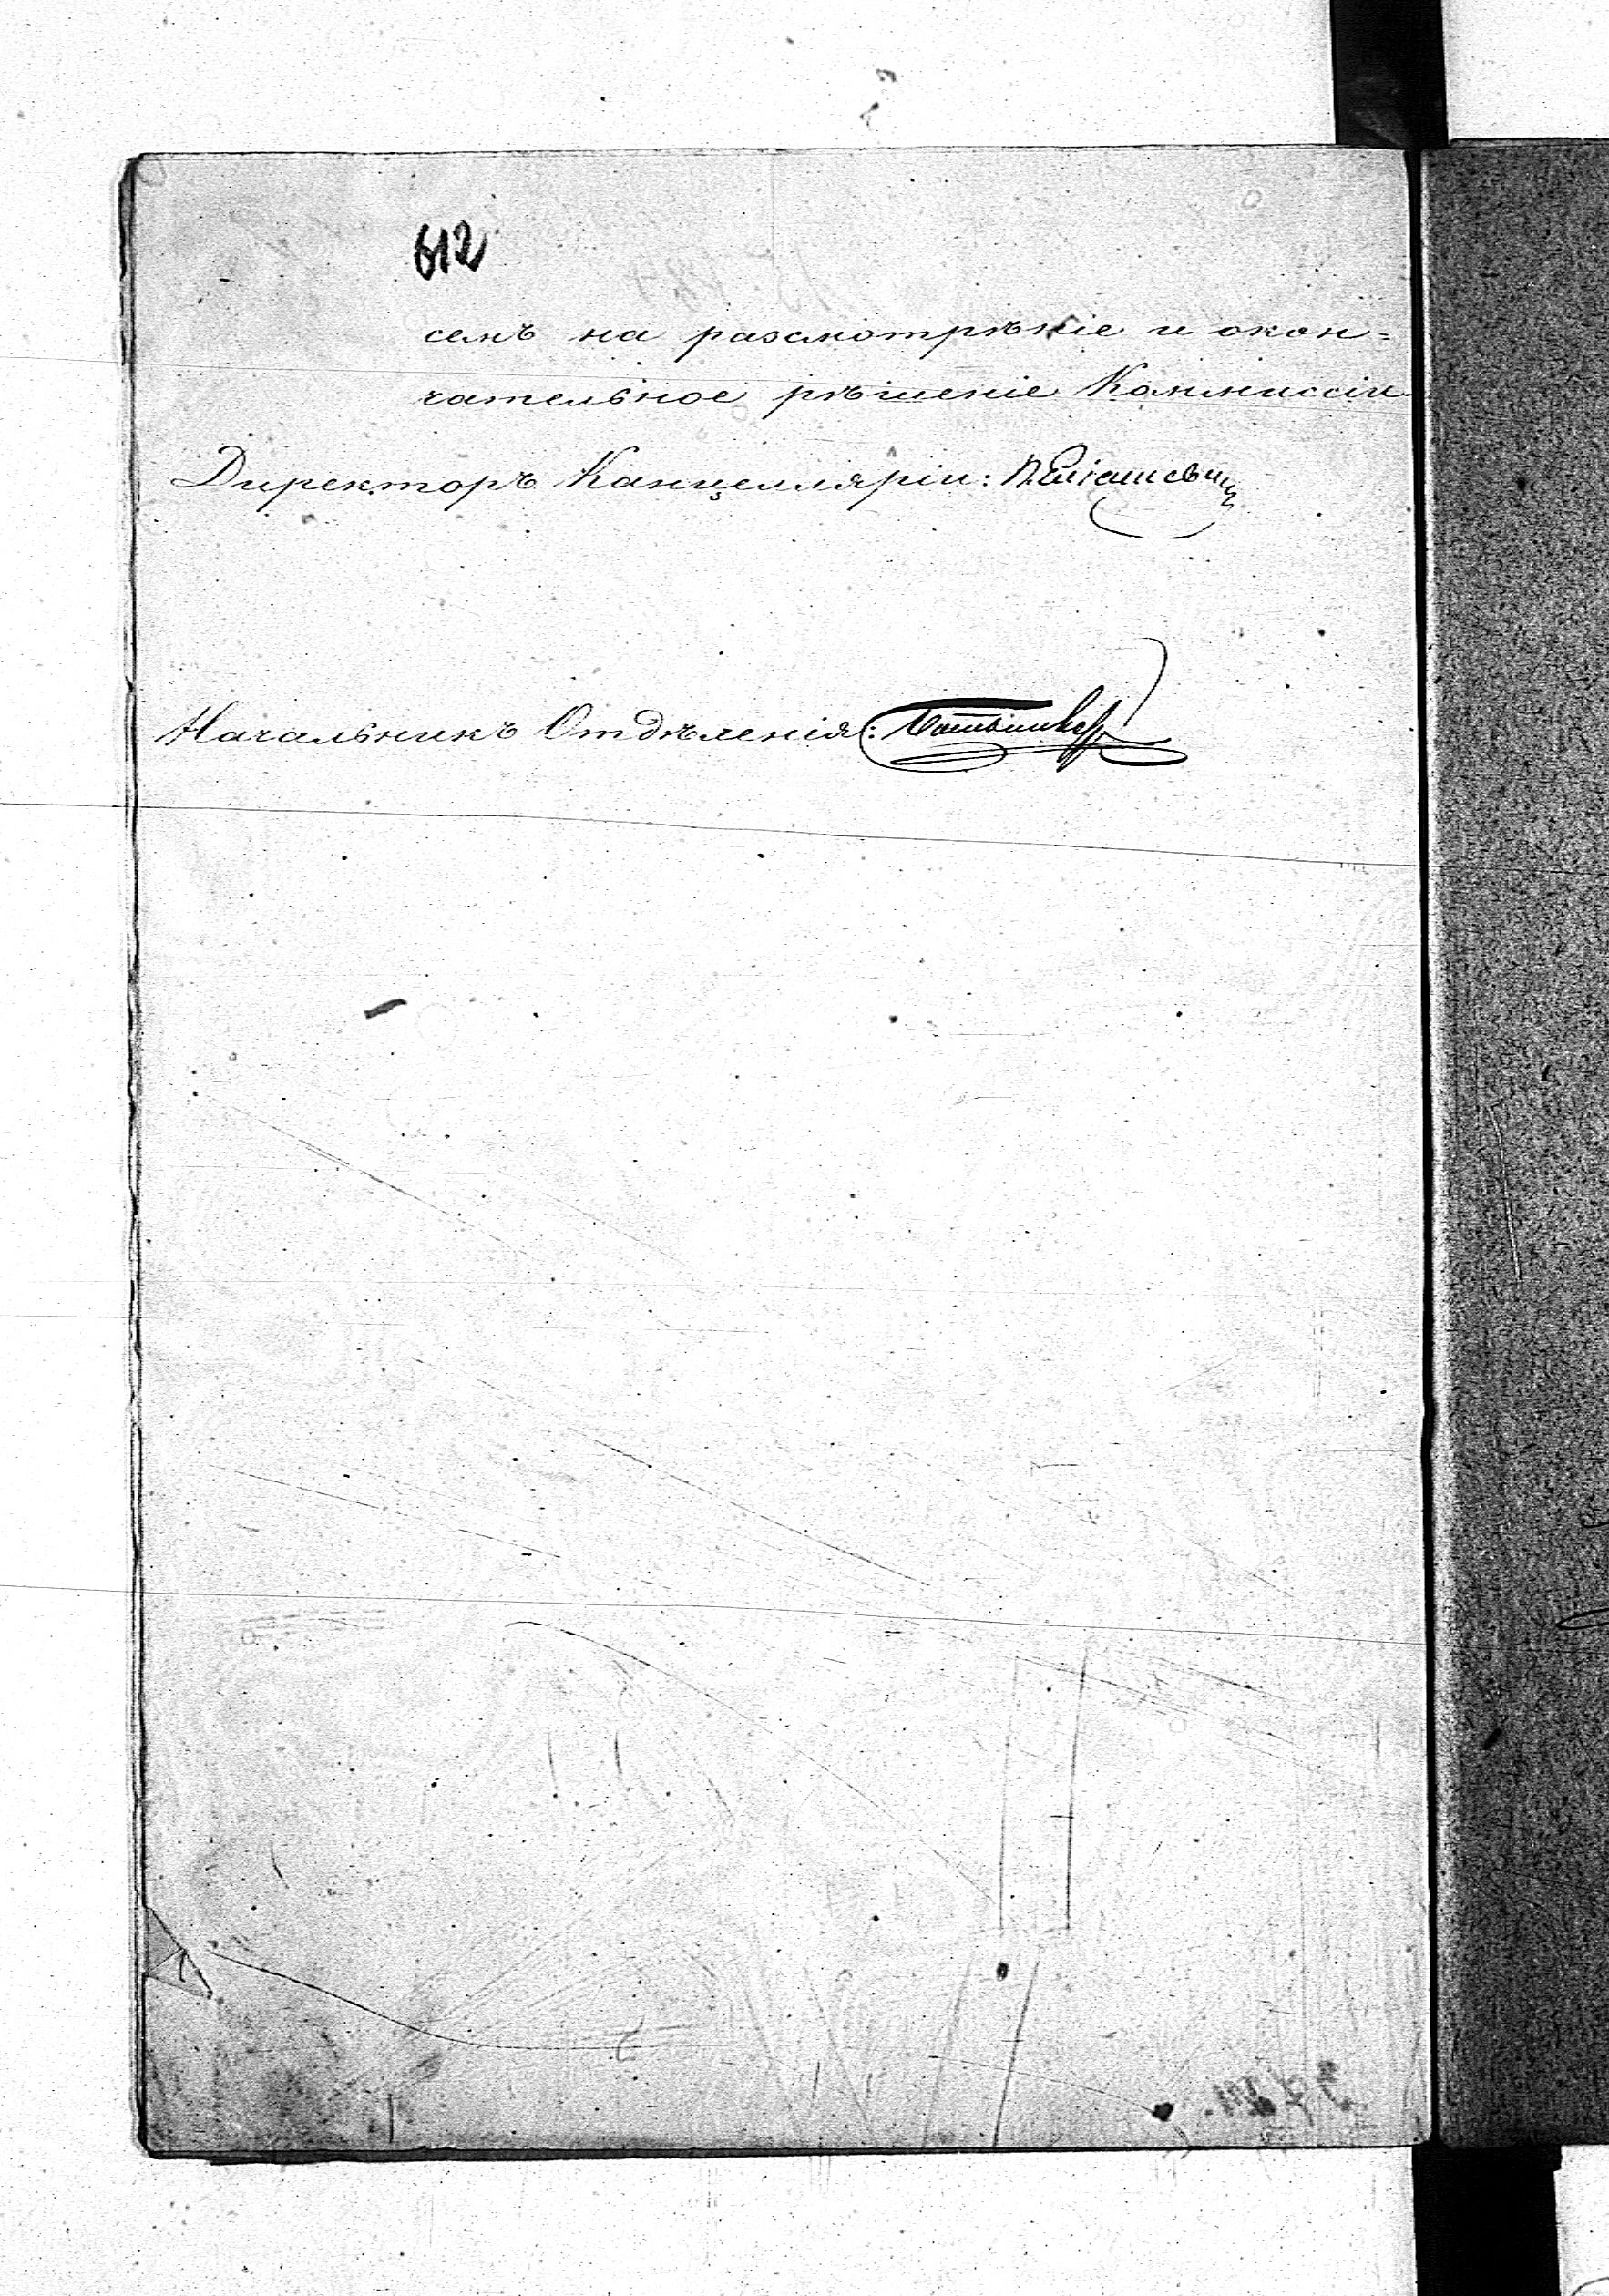 612
семъ на разсмотрѣніе и окон=
чательное рѣшеніе Коммиссіи
Директоръ Канцелляріи:
Начальникъ Отдѣленія: